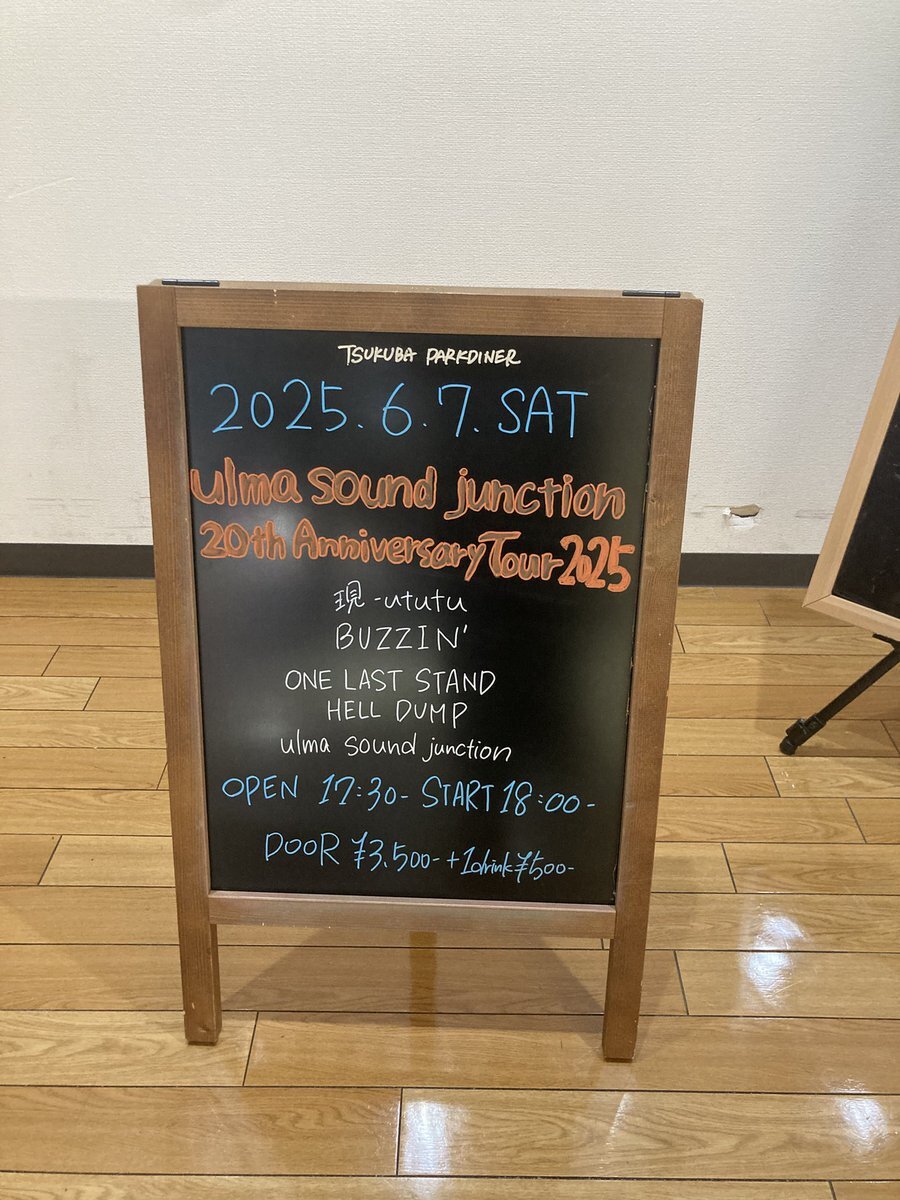 TSUKUBA PARKDINER
2025.6.7.SAT
ulma sound junction
20th Anniversary Tour 2025
現-ututu
BUZZIN'
ONE LAST STAND
HELL DUMP
ulma sound junction
OPEN 17:30- START 18:00-
DOOR ¥3,500- +1drink¥500-